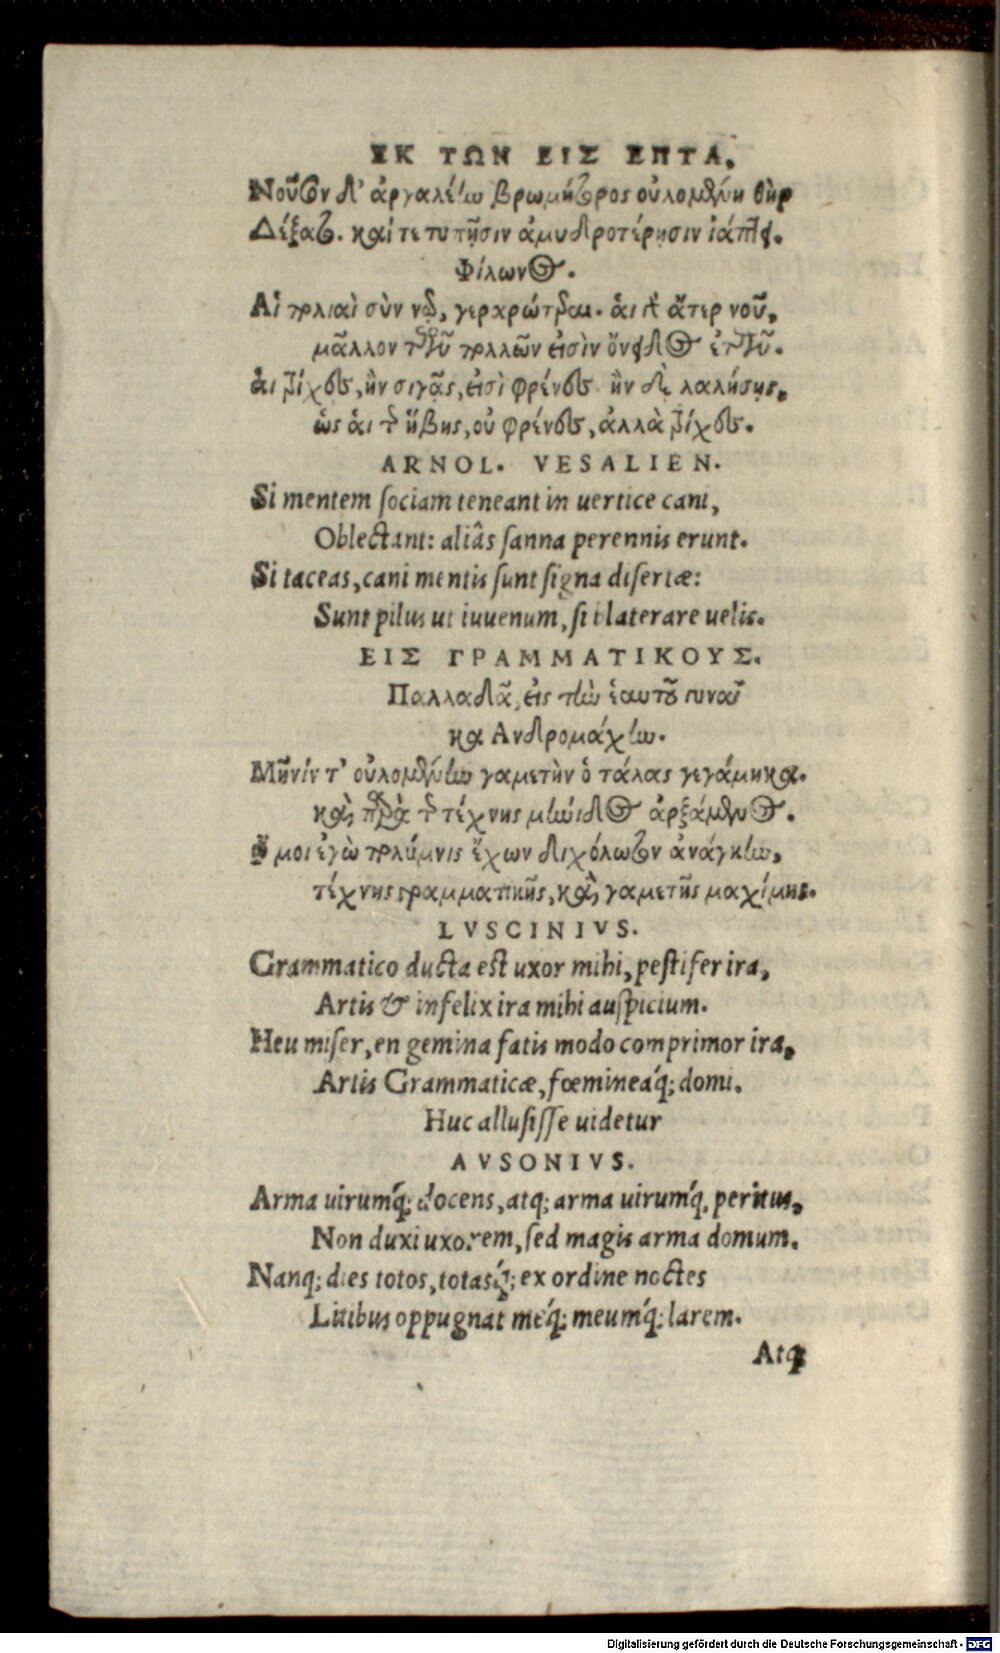 ΕΚ ΤΩΝ ΕΙΣ ΕΠΤΑ.
Νοῦσον δ' ἀργαλέην βρωμήτορος οὐλομένη θὴρ
Δέξατο. καί τε τυτῇσιν ἀμυδροτέρῃσιν ἰάπτει.
Φίλωνος.
Αἱ πολιαὶ σὺν νῷ, γεραρώτεραι. αἱ δ' ἄτερ νοῦ,
μᾶλλον τῶν πολλῶν εἰσὶν ὄνειδος ἐτῶν.
αἱ τρίχες, ἢν σιγᾷς, εἰσὶ φρένες ἢν δὲ λαλήσῃς,
ὡς αἱ τῆς ἥβης, οὐ φρένες, ἀλλὰ τρίχες.
ARNOL. VESALIEN.
Si mentem sociam teneant in uertice cani,
Oblectant: aliâs sanna perennis erunt.
Si taceas, cani mentis sunt signa disertæ:
Sunt pilus ut iuuenum, si blaterare uelis.
ΕΙΣ ΓΡΑΜΜΑΤΙΚΟΥΣ.
Παλλαδᾶ, εἰς τὴν ἑαυτοῦ γυναῖ
κα Ανδρομάχην.
Μῆνίν τ' οὐλομένην γαμετὴν ὁ τάλας γεγάμηκα.
καὶ παρὰ τῆς τέχνης μήνιδος ἀρξάμενος.
ᾤ μοι ἐγὼ πολύμηνις ἔχων διχόλωτον ἀνάγκην,
τέχνης γραμματικῆς, καὶ γαμετῆς μαχίμης.
LVSCINIVS.
Grammatico ducta est uxor mihi, pestifer ira,
Artis & infelix ira mihi auspicium.
Heu miser, en gemina fatis modo comprimor ira,
Artis Grammaticæ, fœmineáq; domi.
Huc allusisse uidetur
AVSONIVS.
Arma uirumq́; docens, atq; arma uirumq́; peritus,
Non duxi uxorem, sed magis arma domum.
Nanq; dies totos, totasq́; ex ordine noctes
Litibus oppugnat méq; meumq́; larem.
Atq;
Digitalisierung gefördert durch die Deutsche Forschungsgemeinschaft - DFG